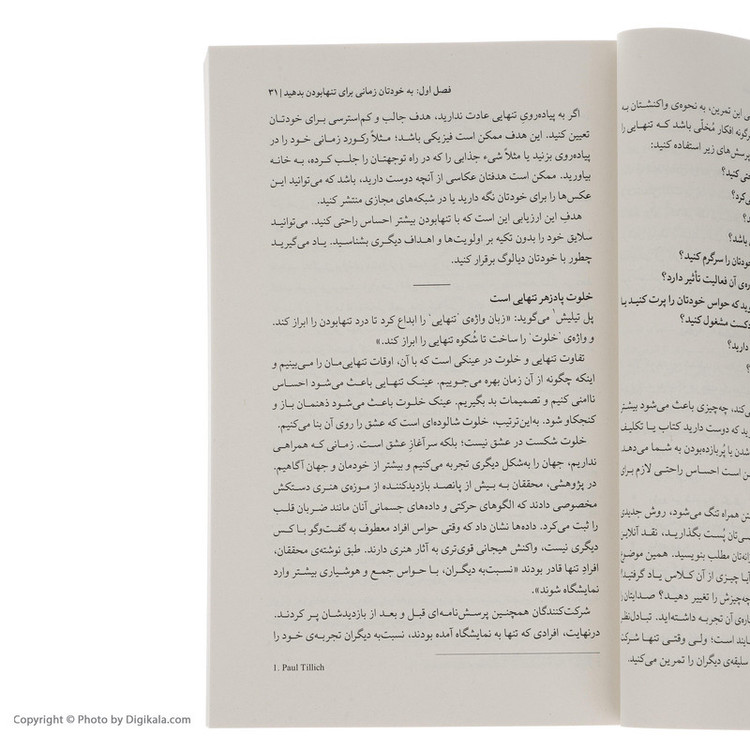 فصل اول: به خودتان زمانی برای تنهابودن بدهید | ۳۱
اگر به پیاده‌رویِ تنهایی عادت ندارید، هدف جالب و کم‌استرسی برای خودتان
تعیین کنید. این هدف ممکن است فیزیکی باشد؛ مثلاً رکورد زمانی خود را در
پیاده‌روی بزنید یا مثلاً شیء جذابی را که در راه توجهتان را جلب کرده، به خانه
بیاورید. ممکن است هدفتان عکاسی از آنچه دوست دارید، باشد که می‌توانید این
عکس‌ها را برای خودتان نگه دارید یا در شبکه‌های مجازی منتشر کنید.
هدفِ این ارزیابی این است که با تنهابودن بیشتر احساس راحتی کنید. می‌توانید
سلایق خود را بدون تکیه بر اولویت‌ها و اهداف دیگری بشناسید. یاد می‌گیرید
چطور با خودتان دیالوگ برقرار کنید.
خلوت پادزهر تنهایی است
پل تیلیش۱ می‌گوید: «زبان واژه‌ی 'تنهایی' را ابداع کرد تا درد تنهابودن را ابراز کند.
و واژه‌ی 'خلوت' را ساخت تا شُکوه تنهایی را ابراز کند.»
تفاوت تنهایی و خلوت در عینکی است که با آن، اوقات تنهایی‌مان را می‌بینیم و
اینکه چگونه از آن زمان بهره می‌جوییم. عینک تنهایی باعث می‌شود احساس
ناامنی کنیم و تصمیمات بد بگیریم. عینک خلوت باعث می‌شود ذهنمان باز و
کنجکاو شود. به‌این‌ترتیب، خلوت شالوده‌ای است که عشق را روی آن بنا می‌کنیم.
خلوت شکست در عشق نیست؛ بلکه سرآغازِ عشق است. زمانی که همراهی
نداریم، جهان را به‌شکل دیگری تجربه می‌کنیم و بیشتر از خودمان و جهان آگاهیم.
در پژوهشی، محققان به بیش از پانصد بازدیدکننده از موزه‌ی هنری دستکش
مخصوصی دادند که الگوهای حرکتی و داده‌های جسمانی آنان مانند ضربان قلب
را ثبت می‌کرد. داده‌ها نشان داد که وقتی حواس افراد معطوف به گفت‌وگو با کس
دیگری نیست، واکنش هیجانی قوی‌تری به آثار هنری دارند. طبق نوشته‌ی محققان،
افرادِ تنها قادر بودند «نسبت‌به دیگران، با حواس جمع و هوشیاری بیشتر وارد
نمایشگاه شوند».
شرکت‌کنندگان همچنین پرسش‌نامه‌ای قبل و بعد از بازدیدشان پر کردند.
درنهایت، افرادی که تنها به نمایشگاه آمده بودند، نسبت‌به دیگران تجربه‌ی خود را
1. Paul Tillich
ی این تمرین، به نحوه‌ی واکنشتان به
رگونه افکار مُخلّی باشد که تنهایی را
پرسش‌های زیر استفاده کنید:
حتی کنید؟
ی‌کرد؟
د؟
باشد؟
خودتان را سرگرم کنید؟
ره‌ی آن فعالیت تأثیر دارد؟
وید که حواس خودتان را پرت کنید یا
دکست مشغول کنید؟
دارید؟
؟
ی‌کند، چه‌چیزی باعث می‌شود بیشتر
ید که دوست دارید کتاب یا تکلیف
شدن یا پُربازده‌بودن به شما می‌دهد
ن است احساس راحتی لازم برای
تن همراه تنگ می‌شود، روش جدیدی
سی‌تان پُست بگذارید، نقد آنلاین
رانه‌تان مطلب بنویسید. همین موضوع
آیا چیزی از آن کلاس یاد گرفتید؟
چه‌چیزش را تغییر دهید؟ صدایتان را
اره‌ی آن تجربه داشته‌اید. تبادل‌نظر
ایند است؛ ولی وقتی تنها شرکت
سلیقه‌ی دیگران را تمرین می‌کنید.
Copyright © Photo by Digikala.com